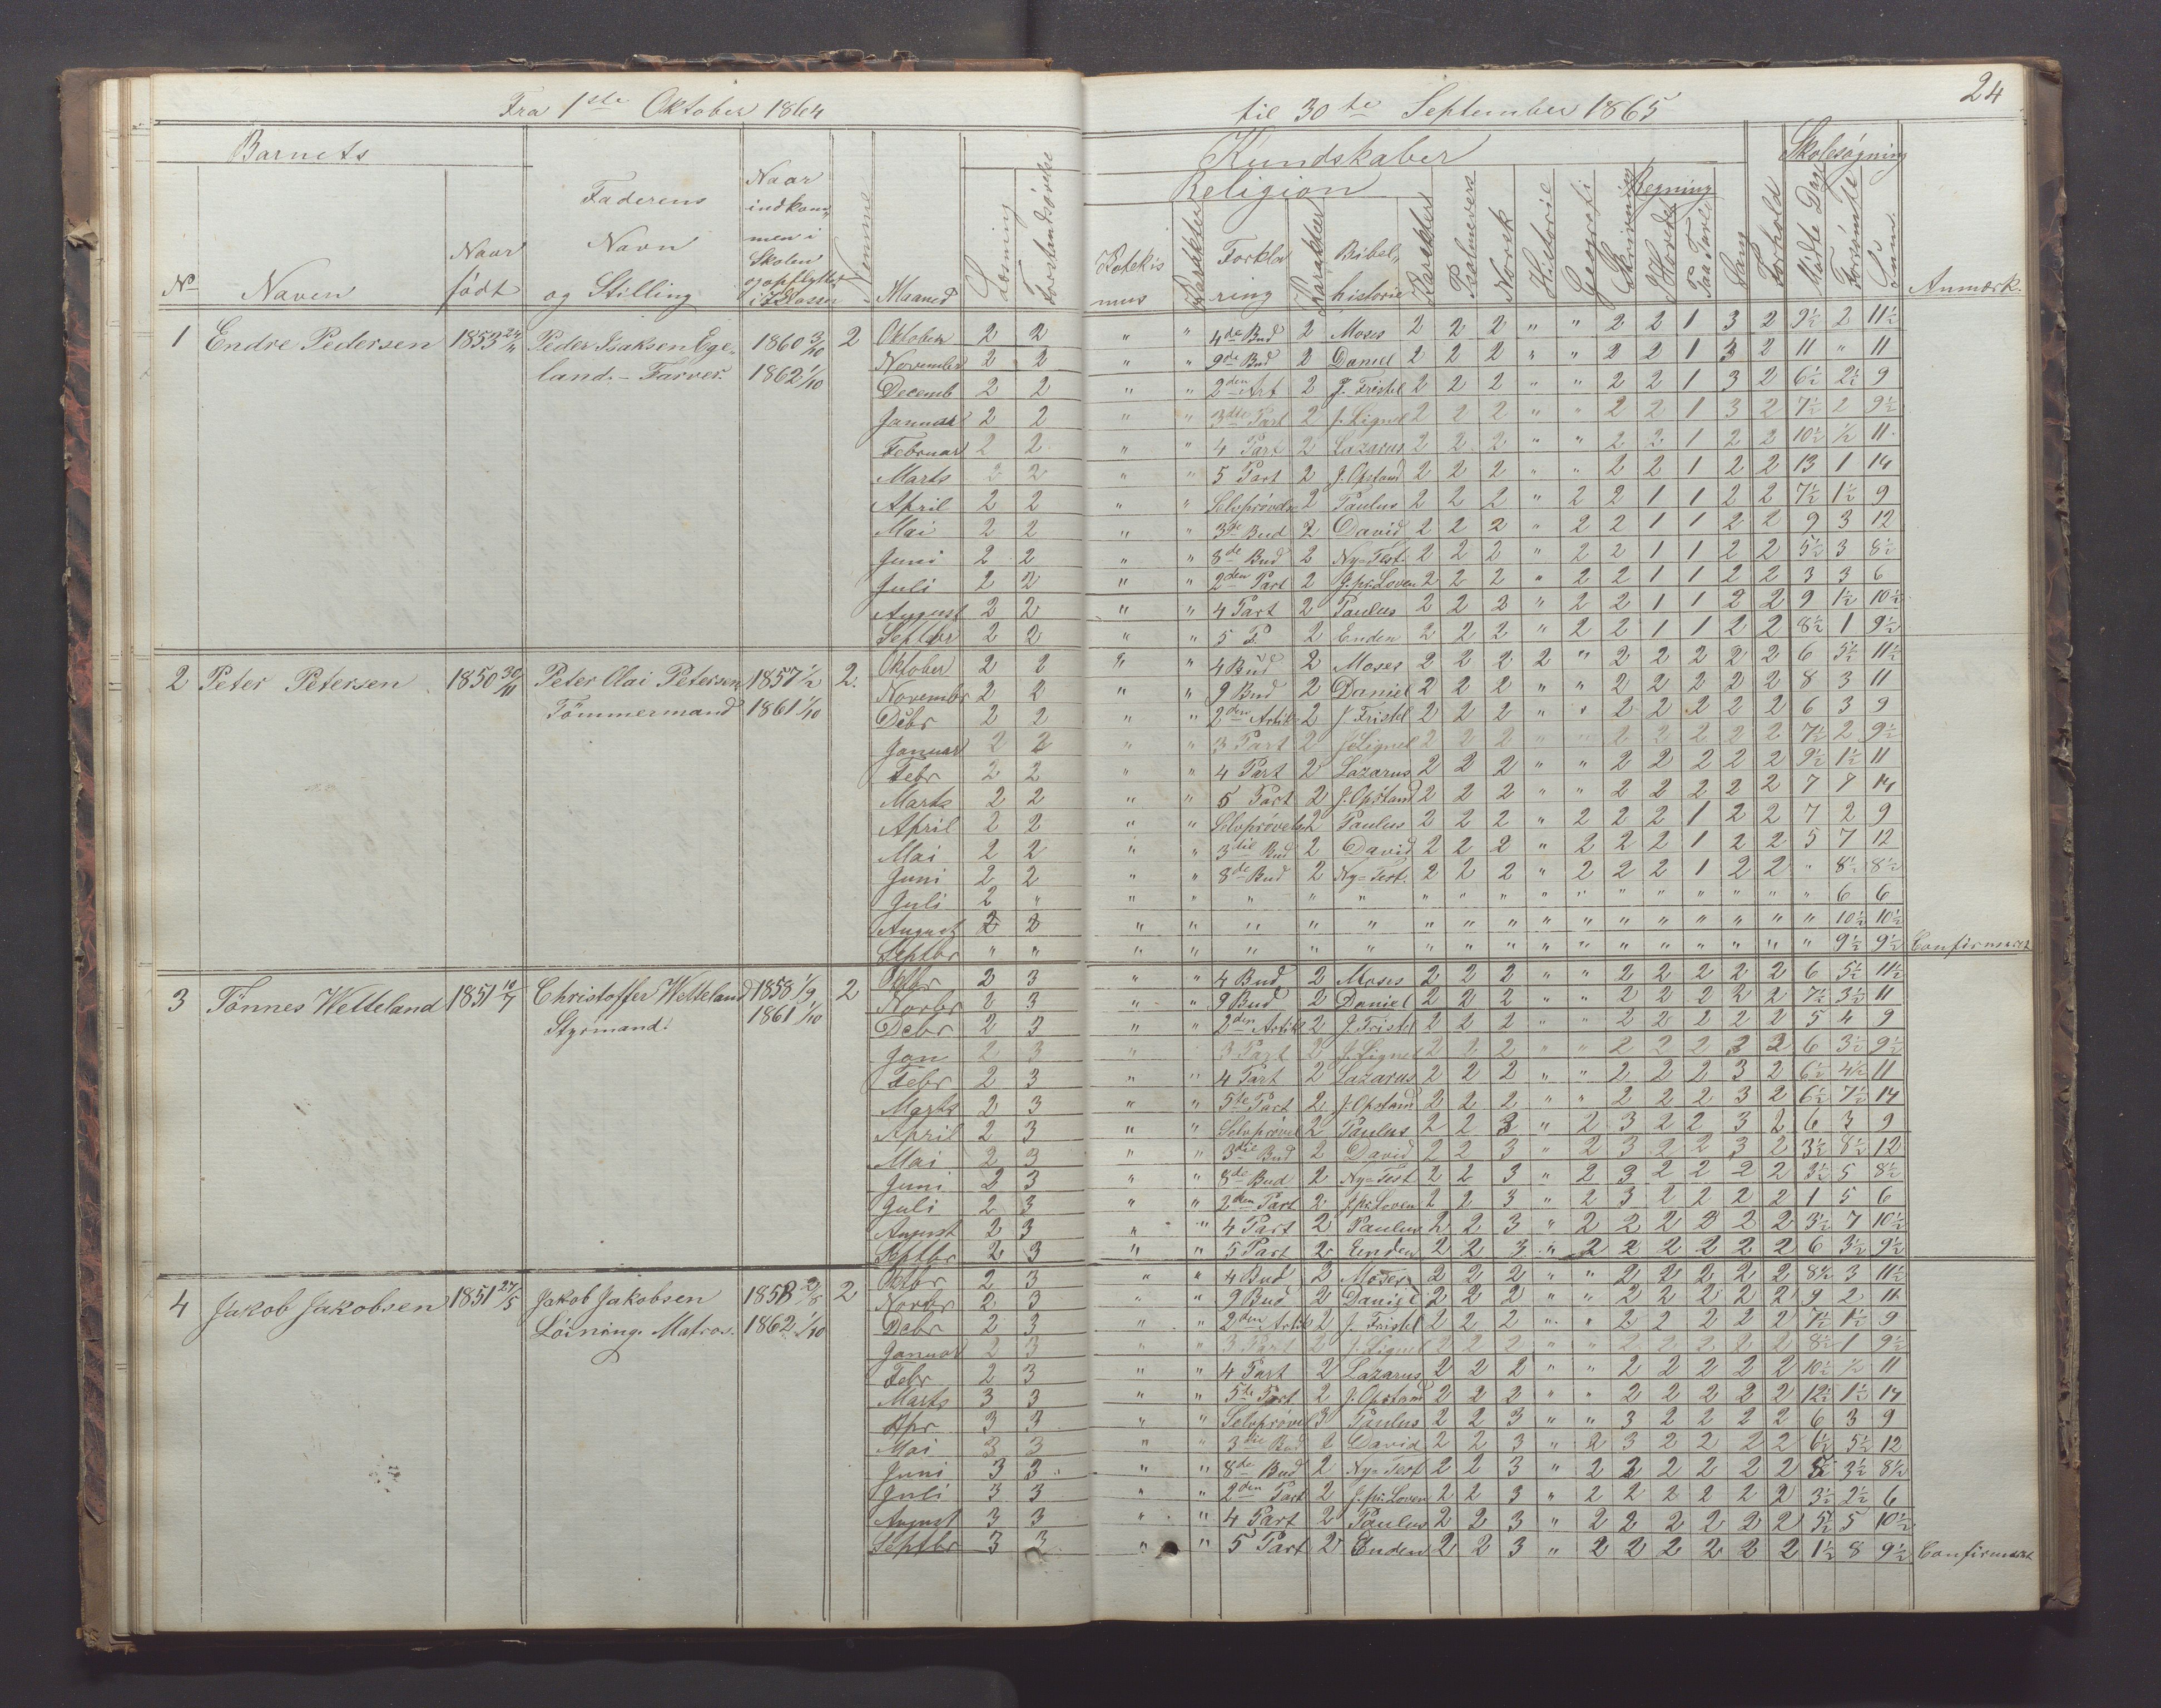 24
Fra 1ste Oktober 1864 til 30te September 1865
Barnets Kundskaber Skolesøgning
Religion Regning
No Navn Naar født Faderens Navn og Stilling Naar indkommen i Skolen og opflyttet i 2 Klasse Nemme Maaned Læsning Forstandsøvelse Katekismus Karakter Forklaring Karakter Bibelhistorie Karakter Psalmevers Norsk Historie Geografi Skrivning I Hovedet Paa Tavle Sang Forhold Mødte Dage Forsømte Sum Anmærk.
1 Endre Pedersen 1853 Peder Isaksen Egeland. - Farver. 1860 3/10 1862 1/10 2
Oktober 2 2 " " 4de Bud 2 Moses 2 2 2 " " 2 2 1 3 2 9½ 2 11½
November 2 2 " " 9de Bud 2 Daniel 2 2 2 " " 2 2 1 3 2 11 " 11
Decemb 2 2 " " 2den Art 2 J. Fristel 2 2 2 " " 2 2 1 3 2 6½ 2½ 9
Januar 2 2 " " 3die Part 2 J. Lignel 2 2 2 " " 2 2 1 3 2 7½ 2 9½
Februar 2 2 " " 4 Part 2 Lazarus 2 2 2 " " 2 2 1 2 2 10½ ½ 11
Marts 2 2 " " 5 Part 2 J. Opstand 2 2 2 " " 2 2 1 2 2 13 1 14
April 2 2 " " Selvprøvelse 2 Paulus 2 2 2 " 2 2 1 1 2 2 7½ 1½ 9
Mai 2 2 " " 3de Bud 2 David 2 2 2 " 2 2 1 1 2 2 9 3 12
Juni 2 2 " " 8de Bud 2 Ny-Test. 2 2 2 " 2 2 1 1 2 2 5½ 3 8½
Juli 2 2 " " 2den Part 2 J. pr. Loven 2 2 2 " 2 2 1 1 2 2 3 3 6
August 2 2 " " 4 Part 2 Paulus 2 2 2 " 2 2 1 1 2 2 9 1½ 10½
Septbr 2 2 " " 5 P. 2 Enden 2 2 2 " 2 2 1 1 2 2 8½ 1 9½
2 Peter Petersen 1850 30/11 Peter Olai Petersen Tømmermand 1857 1/2 1861 1/10 2.
Oktober 2 2 " " 4de Bud 2 Moses 2 2 2 2 " 2 2 2 2 2 6 5½ 11½
Novembr 2 2 " " 9 Bud 2 Daniel 2 2 2 " " 2 2 2 2 2 8 3 11
Debr 2 2 " " 2den Artik 2 J. Fristel 2 2 2 " " 2 2 2 2 2 6 3 9
Januar 2 2 " " 3 Part 2 J. Lignel 2 2 2 " " 2 2 2 2 2 7½ 2 9½
Febr 2 2 " " 4 Part 2 Lazarus 2 2 2 " " 2 2 2 2 2 9½ 1½ 11
Marts 2 2 " " 5 Part 2 J. Opstand 2 2 2 " " 2 2 2 2 2 7 7 14
April 2 2 " " Selvprøvels 2 Paulus 2 2 2 " 2 2 2 1 2 2 7 2 9
Mai 2 2 " " 3die Bud 2 David 2 2 2 " 2 2 2 1 2 2 5 7 12
Juni 2 2 " " 8de Bud 2 Ny-Test. 2 2 2 " 2 2 2 1 2 2 " 8½ 8½
Juli 2 " " " " " " " " " " " " " " " " " 6 6
August 2 2 " " " " " " " " " " " " " " " " 10½ 10½
Septbr " " " " " " " " " " " " " " " " " " 9½ 9½ Confirmeret
3 Tønnes Wetteland 1851 10/7 Christoffer Wetteland Styrmand. 1858 1/9 1861 1/10 2
Octbr 2 3 " " 4 Bud 2 Moses 2 2 2 " " 2 2 2 2 2 6 5½ 11½
Novbr 2 3 " " 9 Bud 2 Daniel 2 2 2 " " 2 2 2 2 2 7½ 3½ 11
Debr 2 3 " " 2den Artik 2 J. Fristel 2 2 2 " " 2 2 2 2 2 5 4 9
Jan 2 3 " 3 Part 2 J. Lignel 2 2 2 " " 2 2 2 2 2 6 3½ 9½
Febr 2 3 " " 4 Part 2 Lazarus 2 2 2 " " 2 2 2 3 2 6½ 4½ 11
Marts 2 3 " " 5te Part 2 J. Opstand 2 2 2 " " 2 2 2 3 2 6½ 7½ 14
April 2 3 " " Selvprøvel 2 Paulus 2 2 3 " 2 3 2 2 3 2 6 3 9
Mai 2 3 " " 3die Bud 2 David 2 2 3 " 2 3 2 2 3 2 3½ 8½ 12
Juni 2 3 " " 8de Bud 2 Ny-Test 2 2 3 " 2 3 2 2 2 2 3½ 5 8½
Juli 2 3 " " 2den Part 2 J. pr. Loven 2 2 3 " 2 3 2 2 2 2 1 5 6
August 2 3 " " 4 Part 2 Paulus 2 2 3 " 2 2 2 2 2 2 3½ 7 10½
Septbr 2 3 " " 5 Part 2 Enden 2 2 3 " 2 2 2 2 2 2 6 3½ 9½
4 Jakob Jakobsen 1851 27/5 Jakob Jakobsen Løining. Matros. 1858 2/8 1862 1/10 2
Octbr 2 3 " " 4 Bud 2 Moses 2 2 2 " " 2 2 2 2 2 8½ 3 11½
Novbr 2 3 " " 9 Bud 2 Daniel 2 2 2 " " 2 2 2 2 2 9 2 11
Debr 2 3 " " 2den Artik 2 J. Fristel 2 2 2 " " 2 2 2 2 2 7½ 1½ 9
Januar 2 3 " " 3 Part 2 J. Lignel 2 2 2 " " 2 2 2 2 2 8½ 1 9½
Febr 2 3 " " 4 Part 2 Lazarus 2 2 2 " " 2 2 2 2 2 10½ ½ 11
Marts 3 3 " " 5te Part 2 J. Opstand 2 2 2 " " 2 2 2 2 2 12½ 1½ 14
Apr 3 3 " " Selvprøvel 3 Paulus 2 2 3 " " 3 2 2 2 2 6 3 9
Mai 3 3 " " 3die Bud 2 David 2 2 3 " 2 3 2 2 2 2 6½ 5½ 12
Juni 3 3 " " 8de Bud 2 Ny-Test 2 2 3 " 2 2 2 2 2 2 5 3½ 8½
Juli 3 3 " " 2den Part 2 J. pr. Loven 2 2 3 " 2 2 2 2 2 2 3½ 2½ 6
August 3 3 " " 4 Part 2 Paulus 2 2 3 " 2 2 2 2 2 2 5½ 5 10½
Septbr 3 3 " " 5 Part 2 Enden 2 2 3 " 2 2 2 2 2 2 1½ 8 9½ Confirmeret